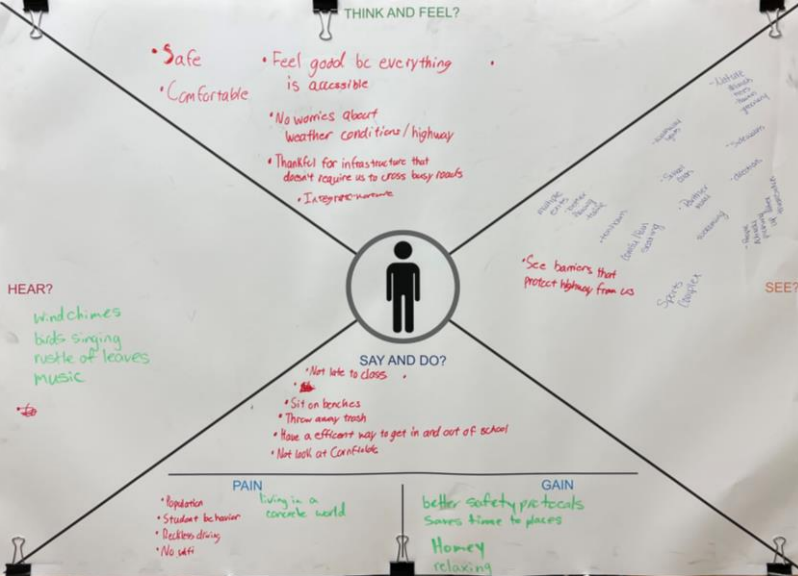 THINK AND FEEL?
• Safe
• Comfortable
• Feel good bc everything
is accessible
• No worries about
weather conditions/highway
• Thankful for infrastructure that
doesn't require us to cross busy roads
HEAR?
windchimes
birds singing
rustle of leaves
music
SEE?
• Nature
multiple
exits
seating
screaming
Sports
complex
• See barriers that
protect highway from us
SAY AND DO?
• Not late to class
• Sit on benches
• Throw away trash
• Have a efficent way to get in and out of school
• Not look at Cornfields
PAIN
• Population
• Student behavior
• Reckless driving
• No wifi
living in a
concrete world
GAIN
better safety protocals
saves time to places
Homey
relaxing